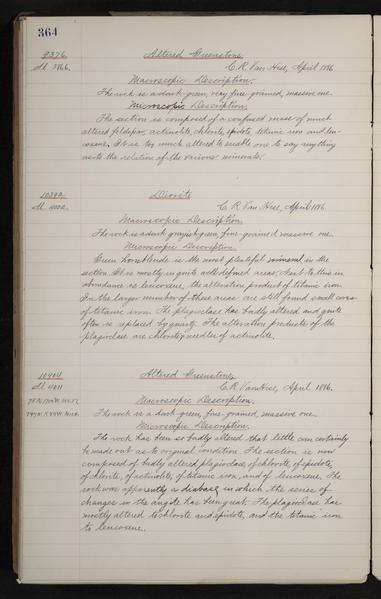 364
9376. Altered Greenstone
Sl. 3966. C.R. Van Hise, April 1886
Macroscopic Description.
The rock is a dark green, very fine-grained, massive one.
Microscopic Description.
The section is composed of a confused mass of much
altered feldspar, actinolite, chlorite, epidote, titanic iron and leu-
coxene. It is too much altered to enable one to say anything
as to the relation of the various minerals.
Diorite
C.R. Van Hise, April 1886
Macroscopic Description
The rock is a dark grayish green, fine-grained massive one.
Microscopic Description.
Green hornblende is the most plentiful mineral in the
section. It is mostly in quite well defined areas. Next to this in
abundance is leucoxene, the alteration product of titanic iron.
In the larger number of these areas are still found small cores
of titanic iron. The plagioclase has badly altered and quite
often is replaced by quartz. The alteration products of the
plagioclase are chlorite, needles of actinolite.
10404 Altered Greenstone
Sl. 4011 C.R. Van Hise, April 1886.
Macroscopic Description.
The rock is a dark green, fine-grained, massive one.
Microscopic Description.
The rock has been so badly altered that little can certainly
be made out as to original condition. The section is now
composed of badly altered plagioclase, of chlorite, of epidote,
of chlorite, of actinolite, of titanic iron, and of leucoxene. The
rock was apparently a diabase in which the series of
changes in the augite has been great. The plagioclase has
mostly altered to chlorite and epidote, and the titanic iron
to leucoxene.